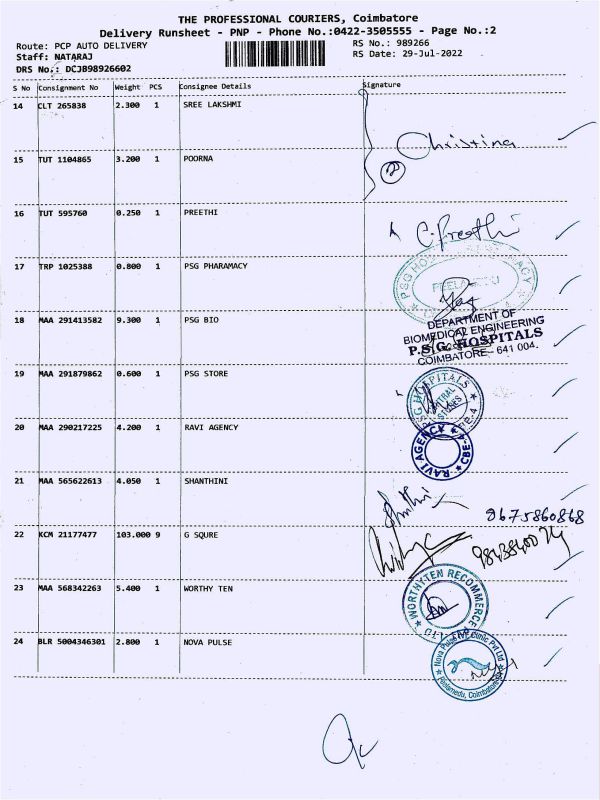 THE PROFESSIONAL COURIERS, Coimbatore
Delivery Runsheet - PNP - Phone No.:0422-3505555 - Page No.:2
Route: PCP AUTO DELIVERY RS No.: 989266
Staff: NATARAJ RS Date: 29-Jul-2022
DRS No.: DCJB98926602
S No Consignment No Weight PCS Consignee Details Signature
14 CLT 265838 2.300 1 SREE LAKSHMI
Christina
15 TUT 1104865 3.200 1 POORNA
16 TUT 595760 0.250 1 PREETHI
C. Preethi
17 TRP 1025388 0.800 1 PSG PHARAMACY
18 MAA 291413582 9.300 1 PSG BIO
DEPARTMENT OF
BIOMEDICAL ENGINEERING
P.S.G. HOSPITALS
COIMBATORE - 641 004.
19 MAA 291879862 0.600 1 PSG STORE
PSG HOSPITALS
CENTRAL STORES
20 MAA 290217225 4.200 1 RAVI AGENCY
RAVI AGENCY CBE-4
21 MAA 565622613 4.050 1 SHANTHINI
Shanthini
9675860868
22 KCM 21177477 103.000 9 G SQURE
9843840074
23 MAA 568342263 5.400 1 WORTHY TEN
WORTHYTEN RECOMMERCE
24 BLR 5004346301 2.800 1 NOVA PULSE
Nova Pulse IVF Clinic Pvt Ltd
Peelamedu, Coimbatore